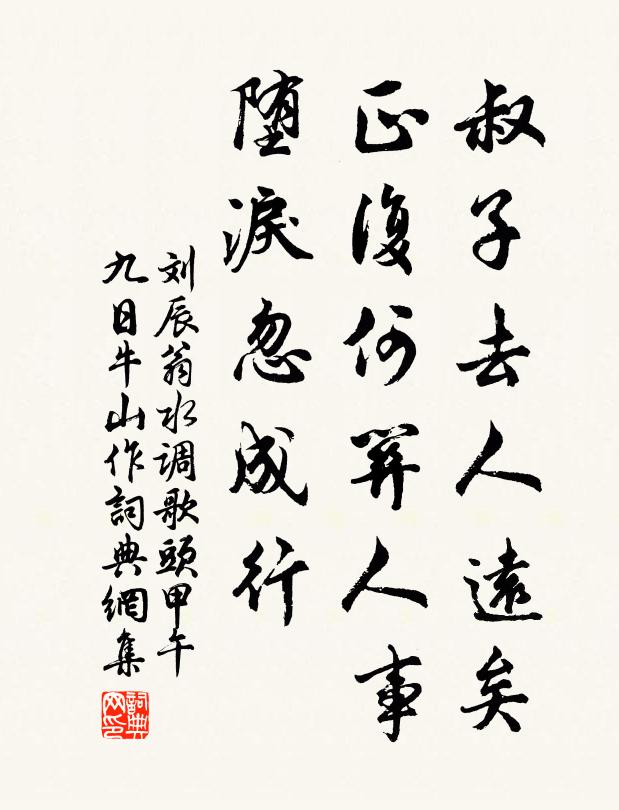 叔子去人遠矣
正復何關人事
堕淚忽成行
刘辰翁水调歌頭甲午
九日牛山作詞典網集
詞典网印